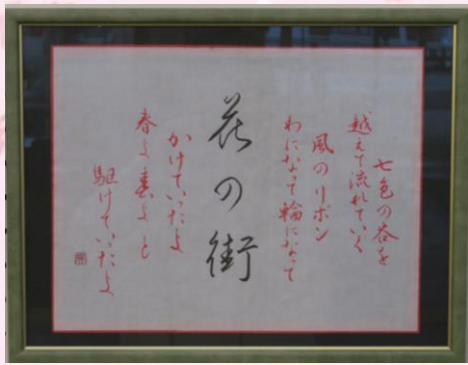 七色の谷を
越えて流れていく
風のリボン
わになって輪になって
花の街
かけていったよ
春よ春よと
駆けていったよ